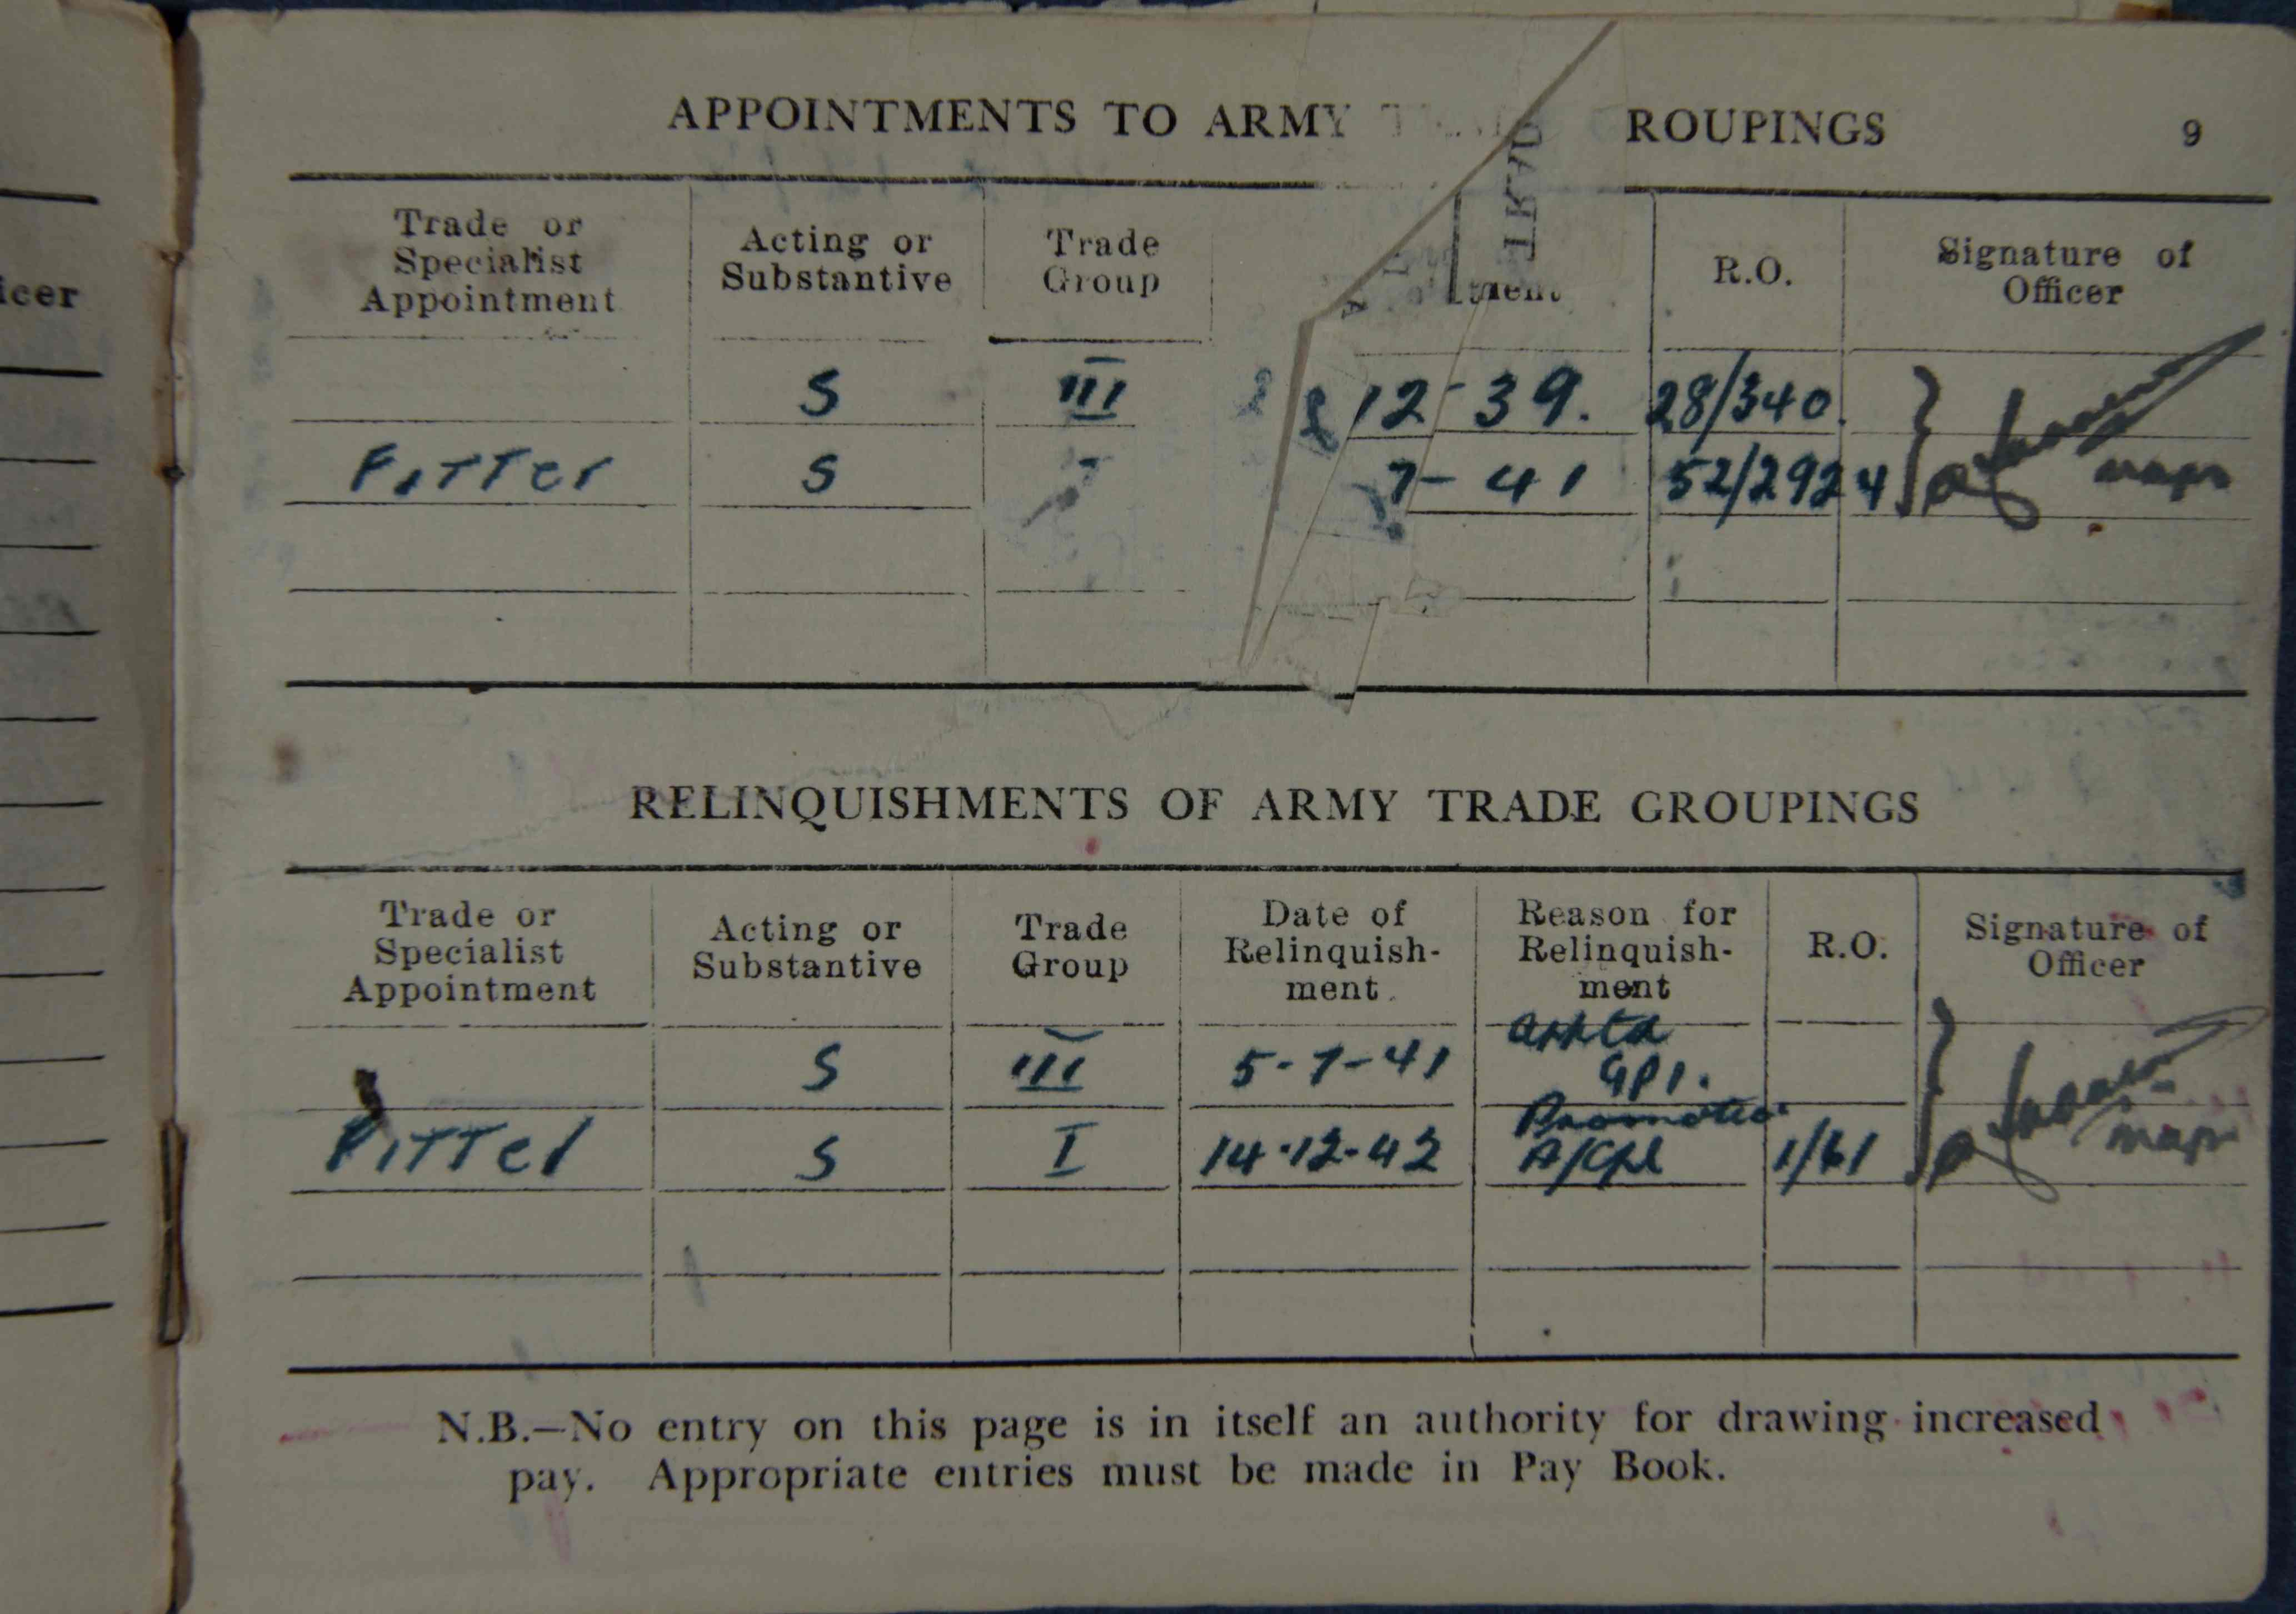 icer
APPOINTMENTS TO ARMY TRAD ROUPINGS 9
Trade or Specialist Appointment Acting or Substantive Trade Group ment R.O. Signature of Officer
S III 12-39. 28/340.
Fitter S 7-41 52/2924 Major
RELINQUISHMENTS OF ARMY TRADE GROUPINGS
Trade or Specialist Appointment Acting or Substantive Trade Group Date of Relinquish- ment Reason for Relinquish- ment R.O. Signature of Officer
S III 5-7-41 Apptd GP1.
Fitter S I 14-12-42 Promotion A/Cpl 1/61 Major
N.B.—No entry on this page is in itself an authority for drawing increased
pay. Appropriate entries must be made in Pay Book.